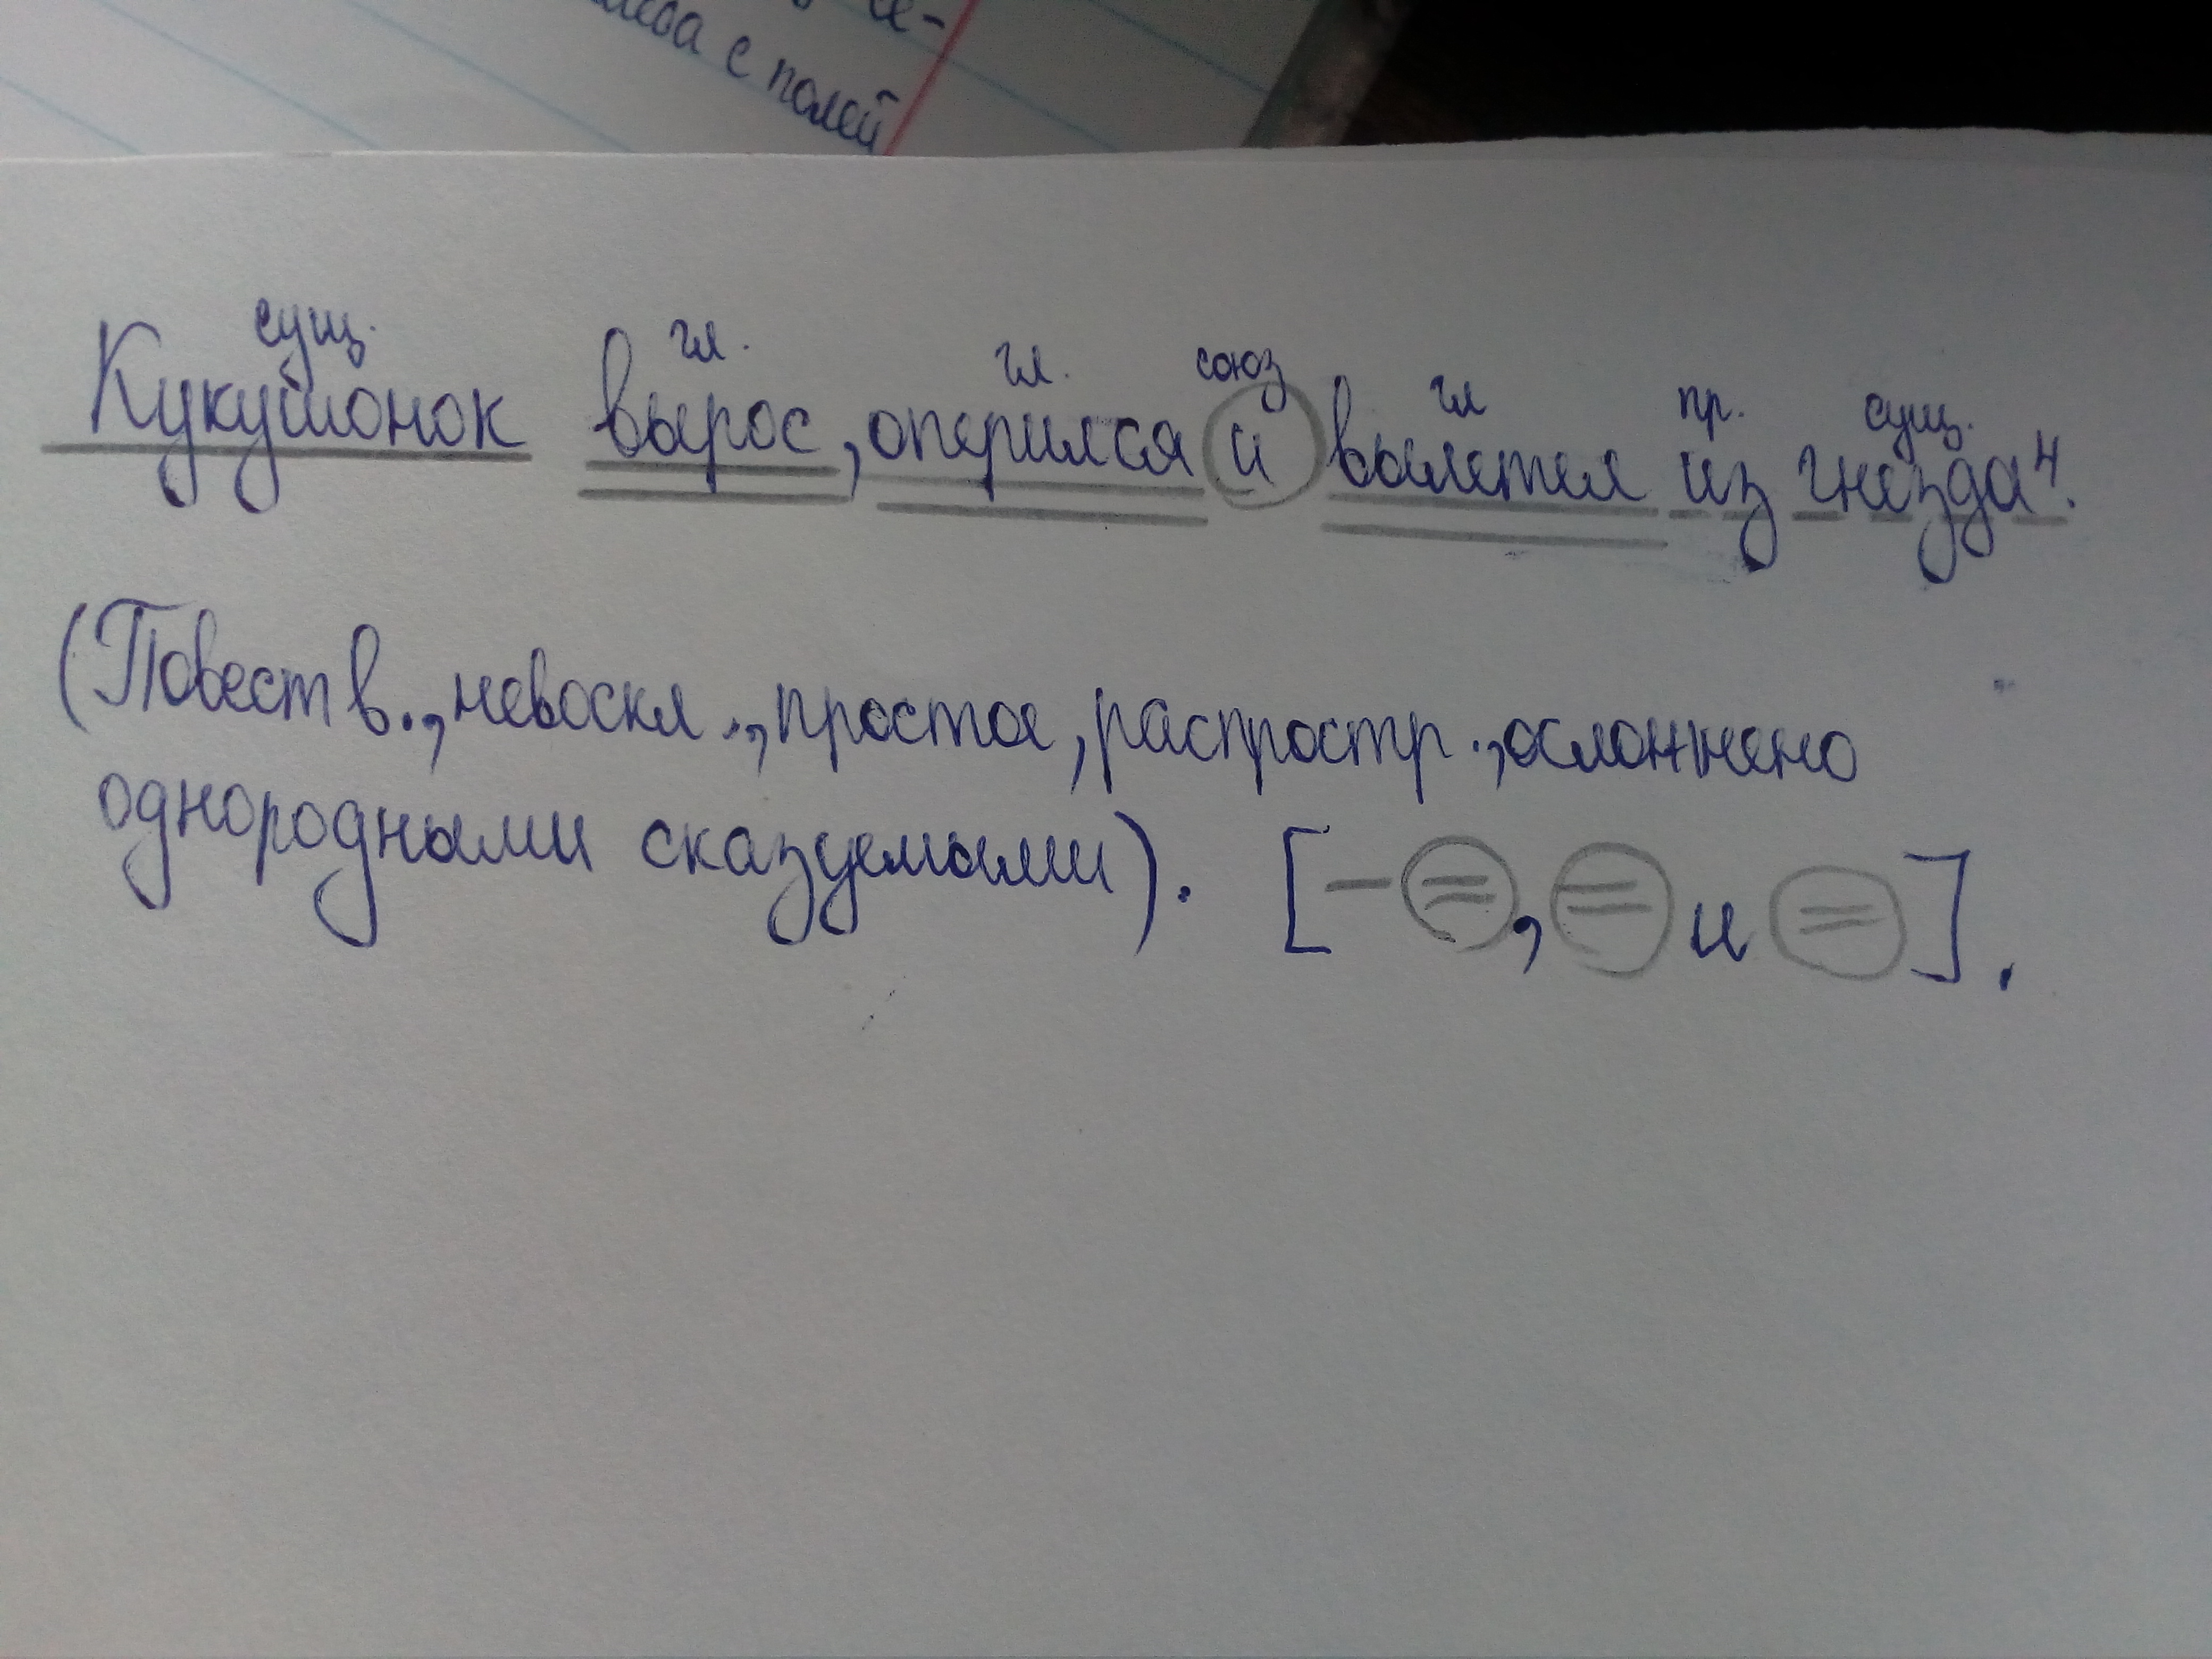 с полей
сущ. гл. гл. союз гл пр. сущ.
Кукушонок вырос, оперился и вылетел из гнезда⁴.
(Повеств., невоскл., простое, распростр., осложнено
однородными сказуемыми). [– =, = и =].